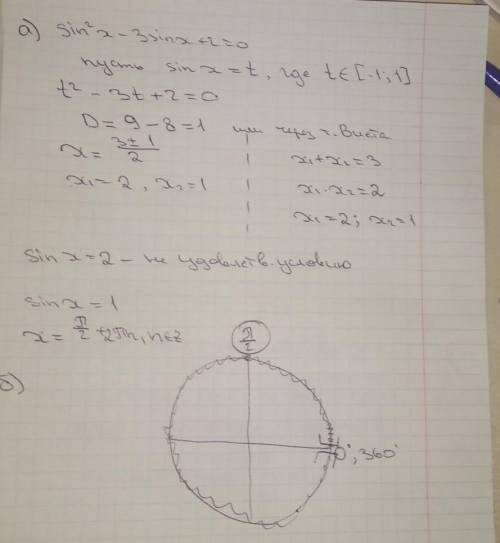 а) sin²x - 3sinx + 2 = 0
пусть sin x = t, где t ∈ [-1; 1]
t² - 3t + 2 = 0
D = 9 - 8 = 1 или через т. Виета
x = (3 ± 1)/2
x₁ + x₂ = 3
x₁ = 2, x₂ = 1
x₁ · x₂ = 2
x₁ = 2; x₂ = 1
sin x = 2 - не удовлетв. условию
sin x = 1
x = π/2 + 2πn, n ∈ z
б)
π/2
0°, 360°